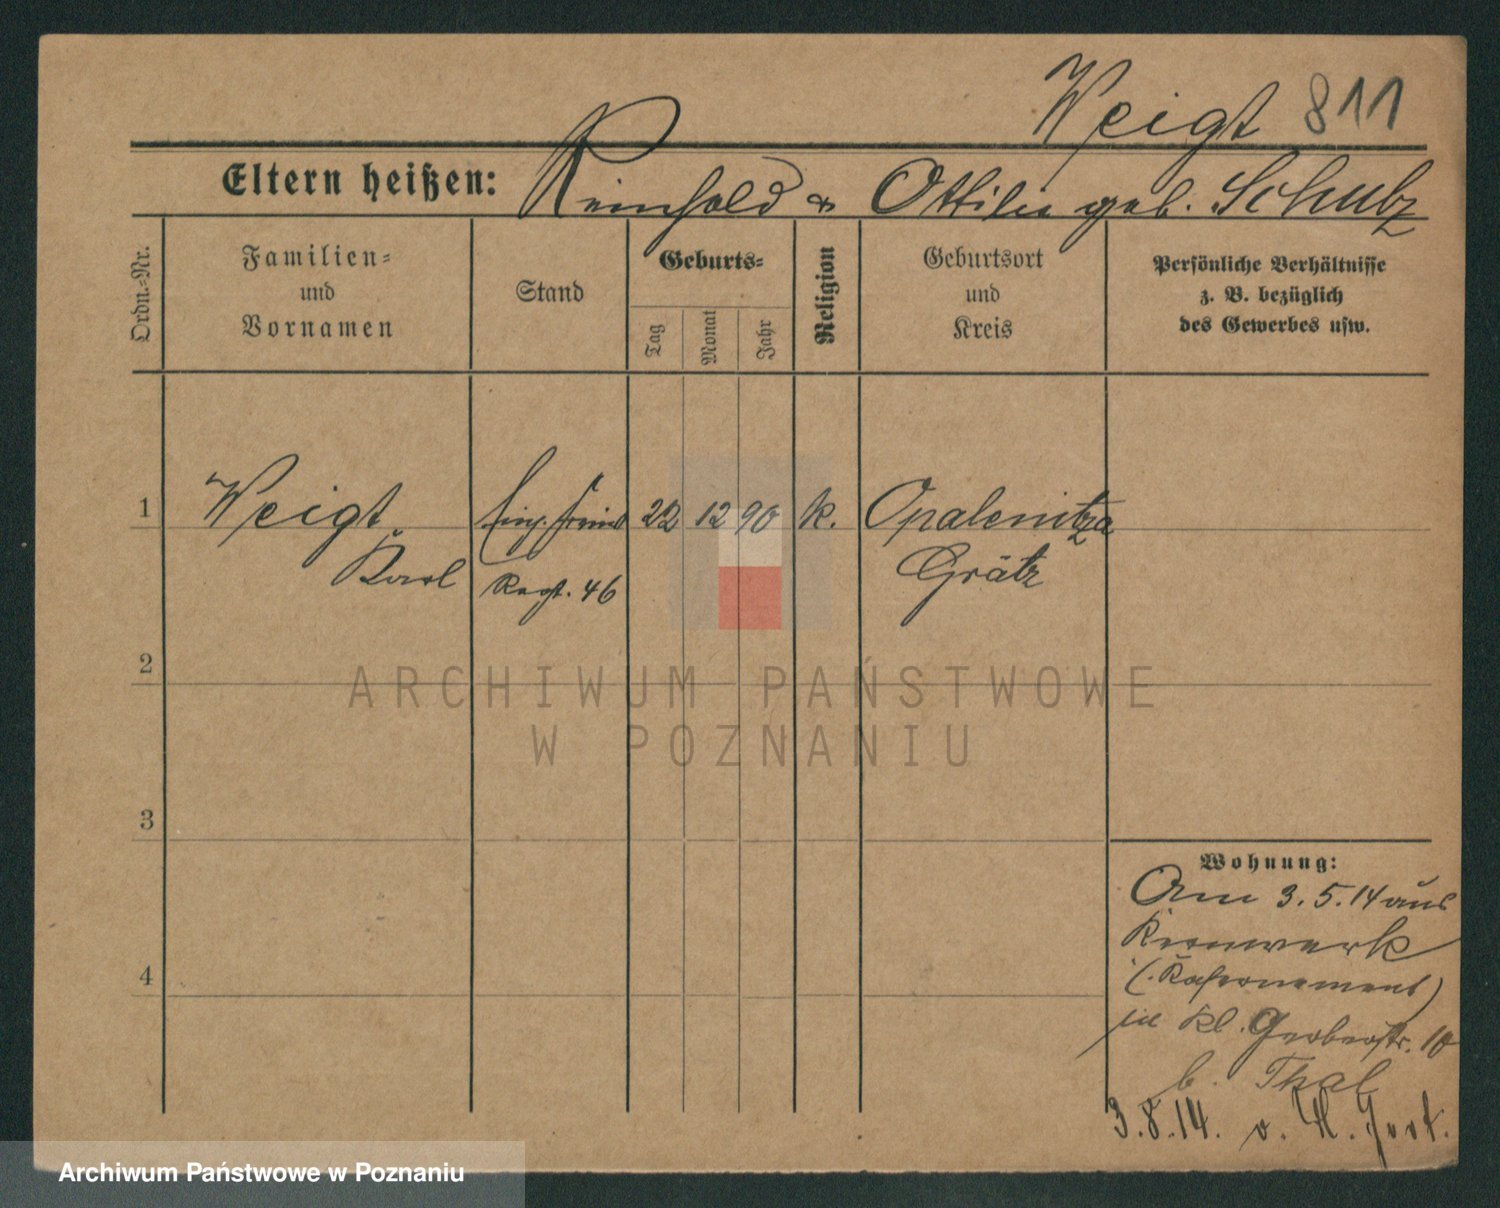 Weigt 811
Eltern heißen: Reinhold & Ottilie geb. Schulz
Ordn.-Nr.
Familien-
und
Vornamen
Stand
Geburts-
Tag
Monat
Jahr
Religion
Geburtsort
und
Kreis
Persönliche Verhältnisse
z. B. bezüglich
des Gewerbes usw.
1 Weigt Einj. Freiw 22 12 90 k. Opalenitza
Karl Regt. 46 Grätz
2
ARCHIWUM PAŃSTWOWE
W POZNANIU
3
Wohnung:
Am 3.5.14 aus
Kernwerk
(Kasernement)
4
in Kl. Gerberstr. 10
b. Thal
3.8.14. v. H.
Archiwum Państwowe w Poznaniu